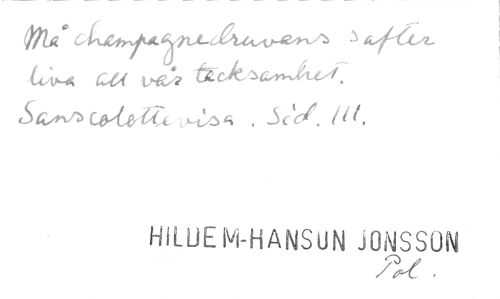 Må champagnedruvans safter
liva all vår tacksamhet.
Sanscolottevisa. Sid. 111.
HILDEM-HANSUN JONSSON
Pol.